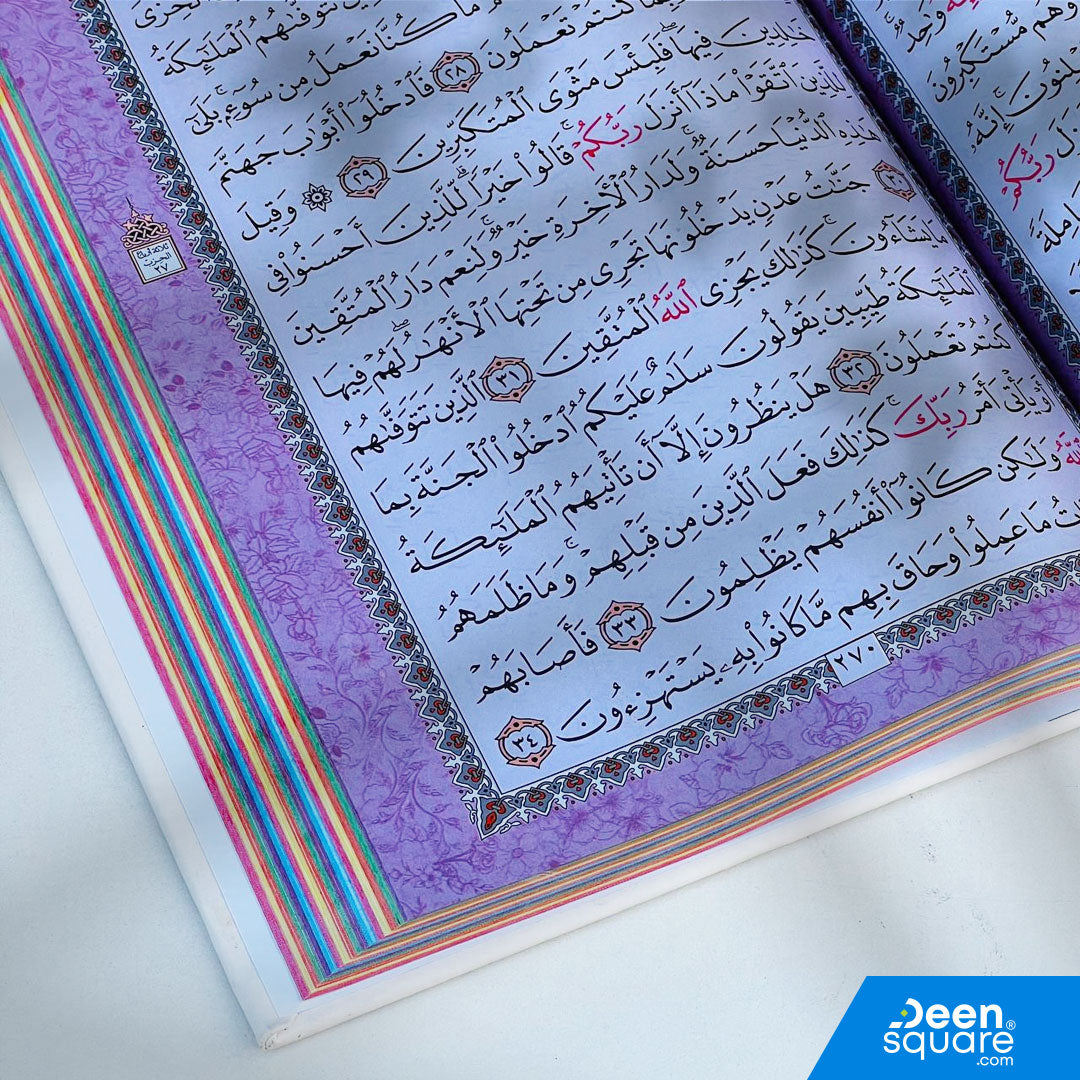 وَحِدٌ
وَهُم مُّسْتَكْبِرُونَ
إِنَّهُۥ
رَبُّكُمْ
تَتَوَفَّىٰهُمُ ٱلْمَلَٰٓئِكَةُ
مَا كُنَّا نَعْمَلُ مِن سُوٓءٍۭ ۚ بَلَىٰٓ
كُنتُمْ تَعْمَلُونَ ٢٨ فَٱدْخُلُوٓا۟ أَبْوَٰبَ جَهَنَّمَ
خَٰلِدِينَ فِيهَا ۖ فَلَبِئْسَ مَثْوَى ٱلْمُتَكَبِّرِينَ ٢٩ ۞ وَقِيلَ
لِلَّذِينَ ٱتَّقَوْا۟ مَاذَآ أَنزَلَ رَبُّكُمْ ۚ قَالُوا۟ خَيْرًا ۗ لِّلَّذِينَ أَحْسَنُوا۟ فِى
هَٰذِهِ ٱلدُّنْيَا حَسَنَةٌ ۚ وَلَدَارُ ٱلْءَاخِرَةِ خَيْرٌ ۚ وَلَنِعْمَ دَارُ ٱلْمُتَّقِينَ
٣٠ جَنَّٰتُ عَدْنٍ يَدْخُلُونَهَا تَجْرِى مِن تَحْتِهَا ٱلْأَنْهَٰرُ ۖ لَهُمْ فِيهَا
مَا يَشَآءُونَ ۚ كَذَٰلِكَ يَجْزِى ٱللَّهُ ٱلْمُتَّقِينَ ٣١ ٱلَّذِينَ تَتَوَفَّىٰهُمُ
ٱلْمَلَٰٓئِكَةُ طَيِّبِينَ ۙ يَقُولُونَ سَلَٰمٌ عَلَيْكُمُ ٱدْخُلُوا۟ ٱلْجَنَّةَ بِمَا
كُنتُمْ تَعْمَلُونَ ٣٢ هَلْ يَنظُرُونَ إِلَّآ أَن تَأْتِيَهُمُ ٱلْمَلَٰٓئِكَةُ
أَوْ يَأْتِىَ أَمْرُ رَبِّكَ ۚ كَذَٰلِكَ فَعَلَ ٱلَّذِينَ مِن قَبْلِهِمْ ۚ وَمَا ظَلَمَهُمُ
ٱللَّهُ وَلَٰكِن كَانُوٓا۟ أَنفُسَهُمْ يَظْلِمُونَ ٣٣ فَأَصَابَهُمْ
مَا عَمِلُوا۟ وَحَاقَ بِهِم مَّا كَانُوا۟ بِهِۦ يَسْتَهْزِءُونَ ٣٤
ثلاثة أرباع
الحزب
٢٧
٢٧٠
Deen
square®
.com